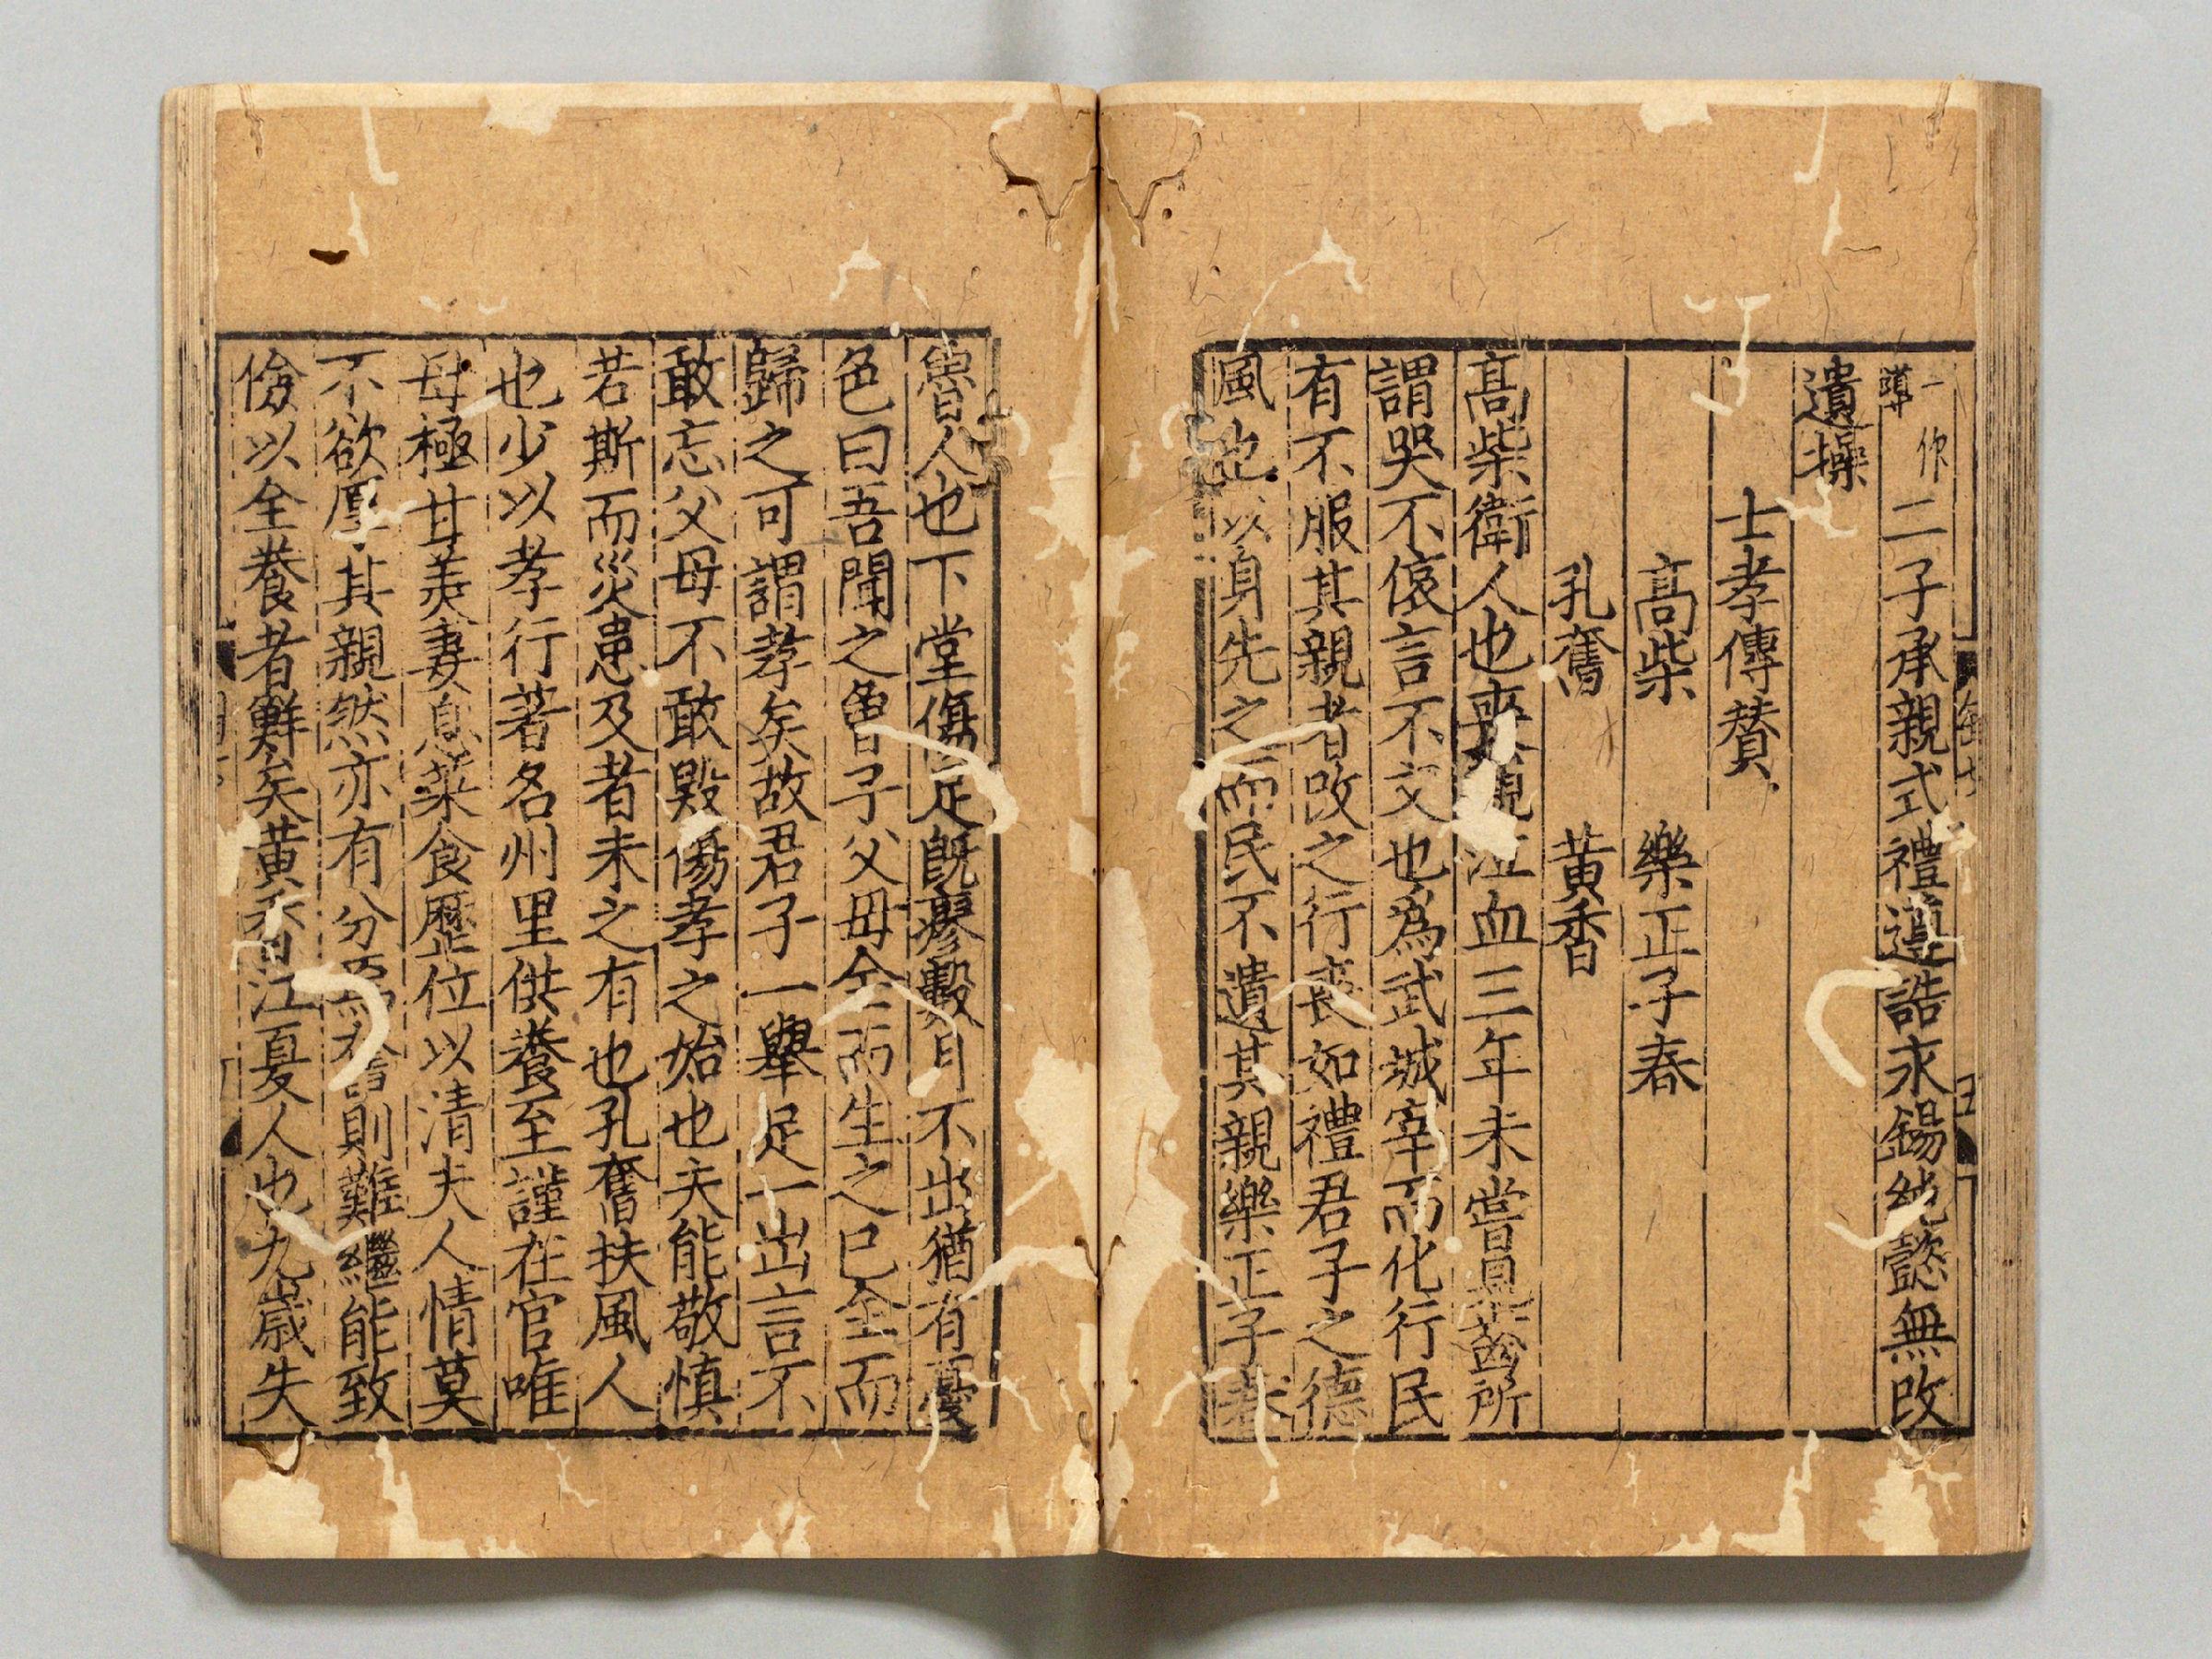 一作
導
二子承親式禮遵誥永錫純懿無改
遺操
士孝傳賛
高柴 樂正子春
孔奮 黃香
高柴衛人也喪親泣血三年未嘗見齒所
謂哭不偯言不文也爲武城宰而化行民
有不服其親者改之行喪如禮君子之德
風也以身先之而民不遺其親樂正子春
魯人也下堂傷足旣瘳數月不出猶有憂
色曰吾聞之曽子父母全而生之已全而
歸之可謂孝矣故君子一舉足一出言不
敢忘父母不敢毀傷孝之始也夫能敬慎
若斯而災患及者未之有也孔奮扶風人
也少以孝行著名州里供養至謹在官唯
母極甘美妻息菜食歷位以清夫人情莫
不欲厚其親然亦有分焉奢則難繼能致
儉以全養者鮮矣黃香江夏人也九歲失